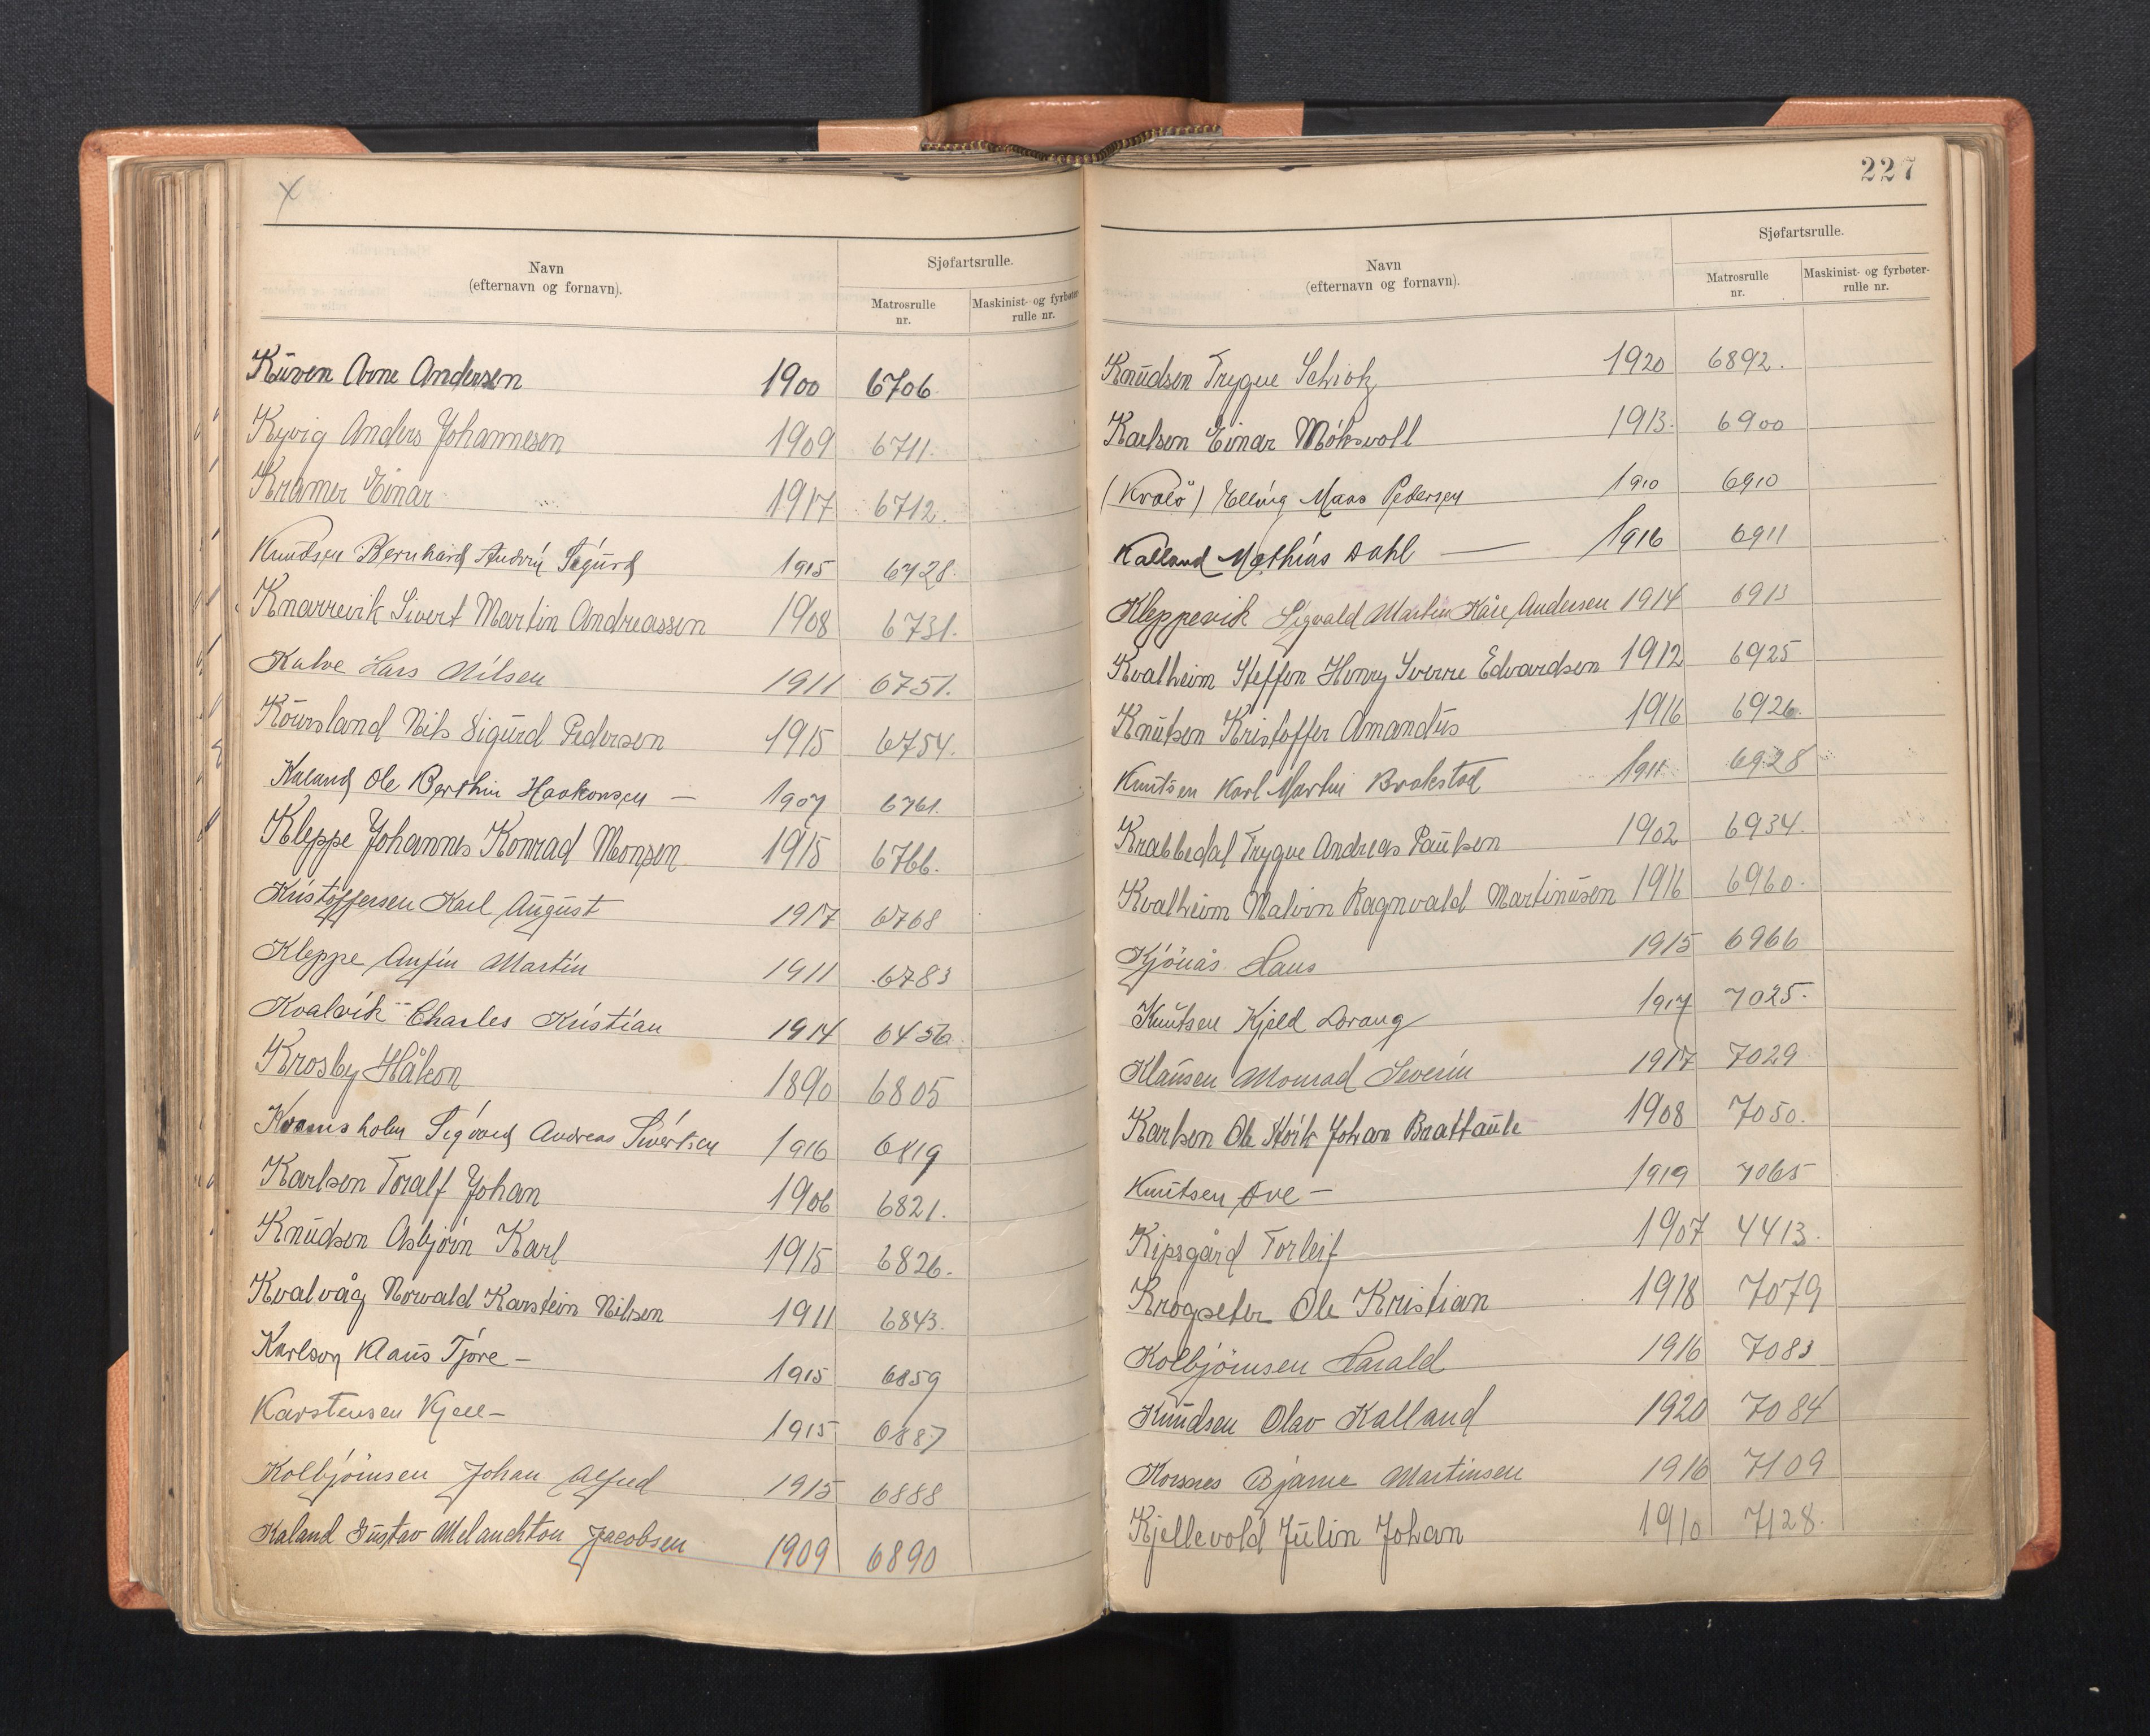 X
Navn
(efternavn og fornavn).
Sjøfartsrulle.
Matrosrulle
nr.
Maskinist- og fyrbøter-
rulle nr.
Kūven Arne Andersen 1900 6706.
Kyvig Anders Johannesen 1909 6711.
Kramer Einar 1917 6712.
Knudsen Bernhard Sigurd 1915 6728.
Knarrevik Sivert Martin Andreassen 1908 6731.
Kalve Lars Nilsen 1911 6751.
Nils Sigurd Pedersen 1915 6754.
Kaland Ole Berthin Haakonsen – 1907 6761.
Kleppe Johannes Konrad Monsen 1915 6766.
Kristoffersen Karl August 1917 6768
Kleppe Anfin Martin 1911 6783
Kvalvik Charles Kristian 1914
Krosby Håkon 1890 6805
Kvamsholm Sigvard Andreas Sivertsen 1916 6819
Karlsen Toralf Johan 1906 6821.
Knudsen Asbjørn Karl 1915 6826.
Kvalvåg Norvald Karstein Nilsen 1911 6843.
Karlson Klaus Tjore – 1915 6859
Karstensen Kjell – 1915 6887
Kolbjörnsen Johan Alfred 1915 6888
Kaland Gustav Melanchton Jacobsen 1909 6890
227
Navn
(efternavn og fornavn).
Sjøfartsrulle.
Matrosrulle
nr.
Maskinist- og fyrbøter-
rulle nr.
Knudsen Trygve Schiotz 1920 6892.
Karlsen Einar Móksvoll 1913. 6900
(Kvalö) Elling Maas Pedersen 1910 6910
Kalland Mathias Dahl — 1916 6911
Kleppevik Sigvald Martin Kåre Andersen 1914 6913
Kvalheim Steffen Henry Sverre Edvardsen 1912 6925
Knutsen Kristoffer Amandus 1916 6926.
Knutsen Karl Martin Brakstad 1911 6928
Krabbedal Trygve Andreas Paulsen 1902 6934.
Kvalheim Malvin Ragnvald Martinusen 1916 6960.
Kjönås Hans 1915 6966
Knutsen Kjeld Dorang 1917 7025.
Klausen Monrad Severin 1917 7029
Karlsen Ole Johan 1908 7050.
Knutsen Ove – 1919 7065
Kipsgård Torleif 1907 4413.
Krogseter Ole Kristian 1918 7079
Kolbjörnsen Harald 1916 7083
Knudsen Olav Kalland 1920 7084
Korsnes Bjarne Martinsen 1916 7109
Kjellevold Julin Johan 1910 7128.